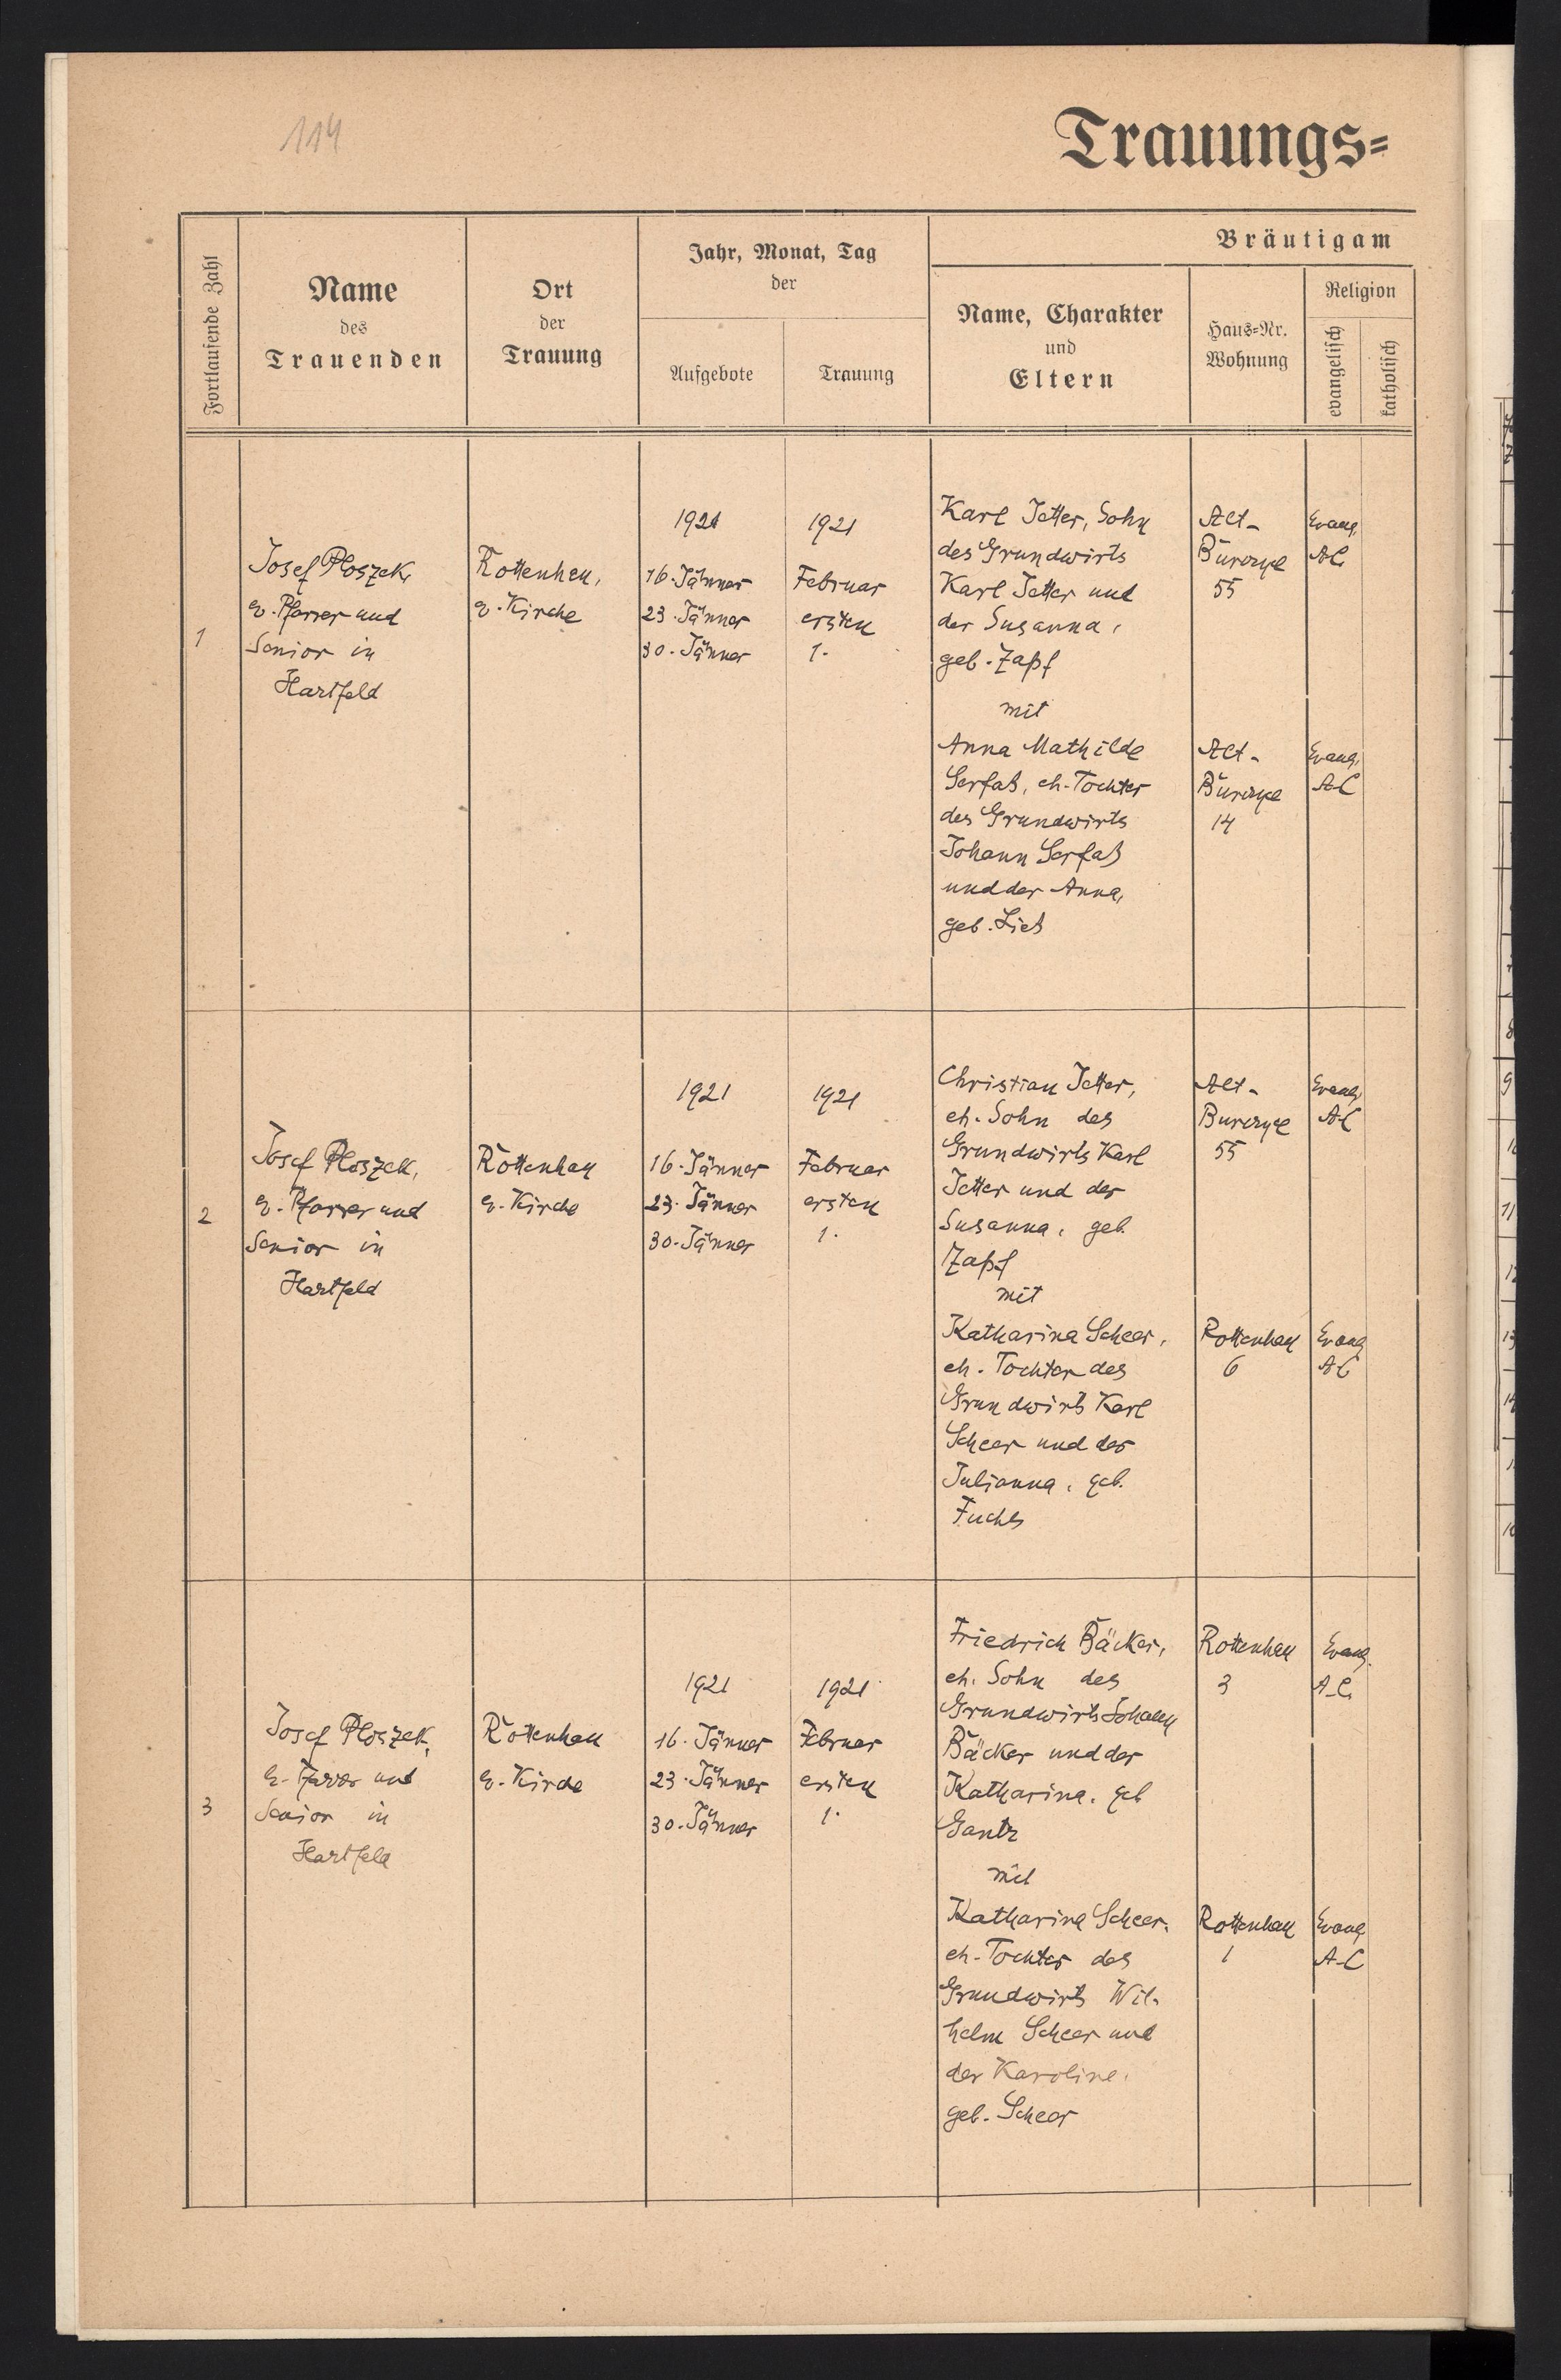 114
Trauungs=
Fortlaufende Zahl
Name
des
Trauenden
Ort
der
Trauung
Jahr, Monat, Tag
der
Aufgebote
Trauung
Bräutigam
Name, Charakter
und
Eltern
Haus=Nr.
Wohnung
Religion
evangelisch
katholisch
1
Josef Ploszek,
ev. Pfarrer und
Senior in
Hartfeld
Rottenhan,
ev. Kirche
1921
16. Jänner
23. Jänner
30. Jänner
1921
Februar
ersten
1.
Karl Jetter, Sohn
des Grundwirts
Karl Jetter und
der Susanna,
geb. Zapf
mit
Anna Mathilde
Serfaß, eh. Tochter
des Grundwirts
Johann Serfaß
und der Anna,
geb. Lieb
Alt-
Burczyce
55
Alt-
Burczyce
14
Evang.
AC
Evang.
AC
2
Josef Ploszek,
ev. Pfarrer und
Senior in
Hartfeld
Rottenhan
ev. Kirche
1921
16. Jänner
23. Jänner
30. Jänner
1921
Februar
ersten
1.
Christian Jetter,
eh. Sohn des
Grundwirts Karl
Jetter und der
Susanna, geb.
Zapf
mit
Katharina Scheer,
eh. Tochter des
Grundwirts Karl
Scheer und der
Julianna, geb.
Fuchs
Alt-
Burczyce
55
Rottenhan
6
Evang.
AC
Evang
AC
3
Josef Ploszek,
ev. Pfarrer und
Senior in
Hartfeld
Rottenhan
ev. Kirche
1921
16. Jänner
23. Jänner
30. Jänner
1921
Februar
ersten
1.
Friedrich Bäcker,
eh. Sohn des
Grundwirts Johann
Bäcker und der
Katharina, geb
Gantz
mit
Katharina Scheer,
eh. Tochter des
Grundwirts Wil-
helm Scheer und
der Karoline,
geb. Scheer
Rottenhan
3
Rottenhan
1
Evang.
A.C.
Evang
A.C